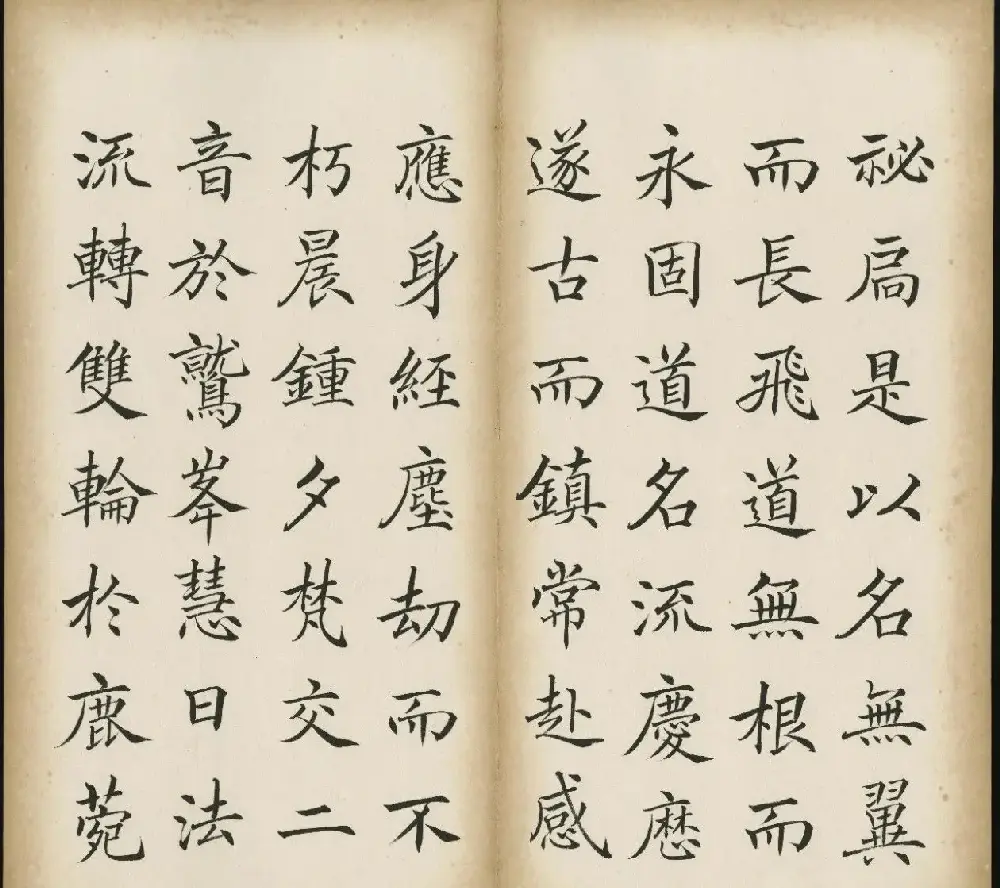 祕扃是以名無翼
而長飛道無根而
永固道名流慶歷
遂古而鎮常赴感
應身經塵劫而不
朽晨鍾夕梵交二
音於鷲峯慧日法
流轉雙輪於鹿菀